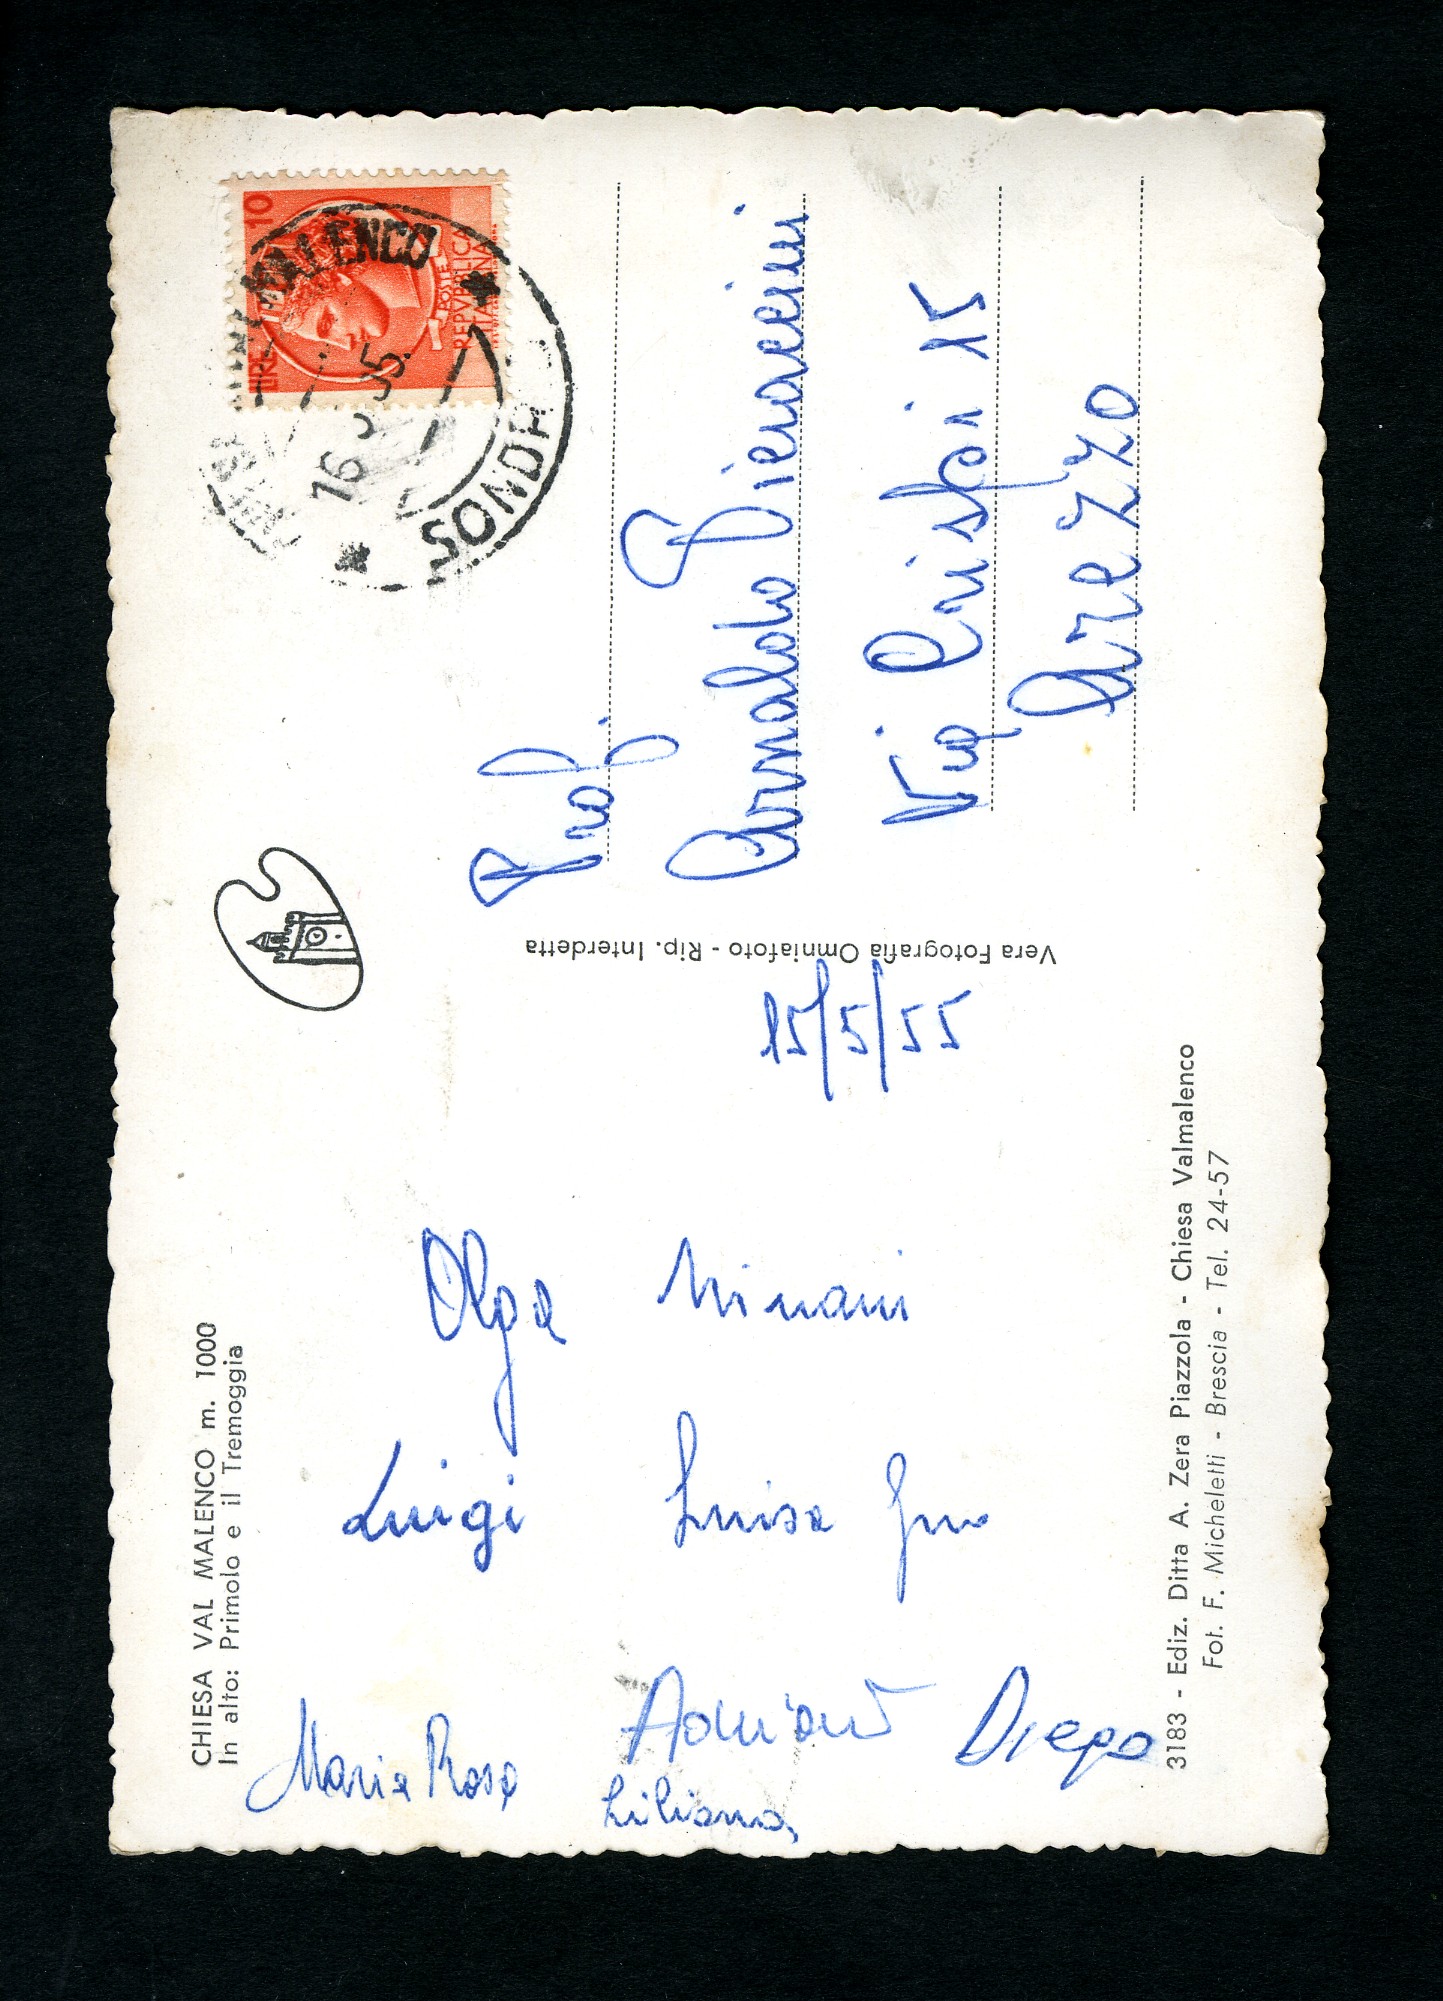 CHIESA VAL MALENCO m. 1000
In alto: Primolo e il Tremoggia
LIRE 10
POSTE
REPVBBLICA
ITALIANA
MALENCO
16 55
SONDR
Prof.
Arnaldo Pieraccini
Via Crispi 15
Arezzo
Vera Fotografia Omniafoto - Rip. Interdetta
15/5/55
Olga
Luigi Luisa
Maria Rosa
Adriano Diego
Liliana
3183 - Ediz. Ditta A. Zera Piazzola - Chiesa Valmalenco
Fot. F. Micheletti - Brescia - Tel. 24-57